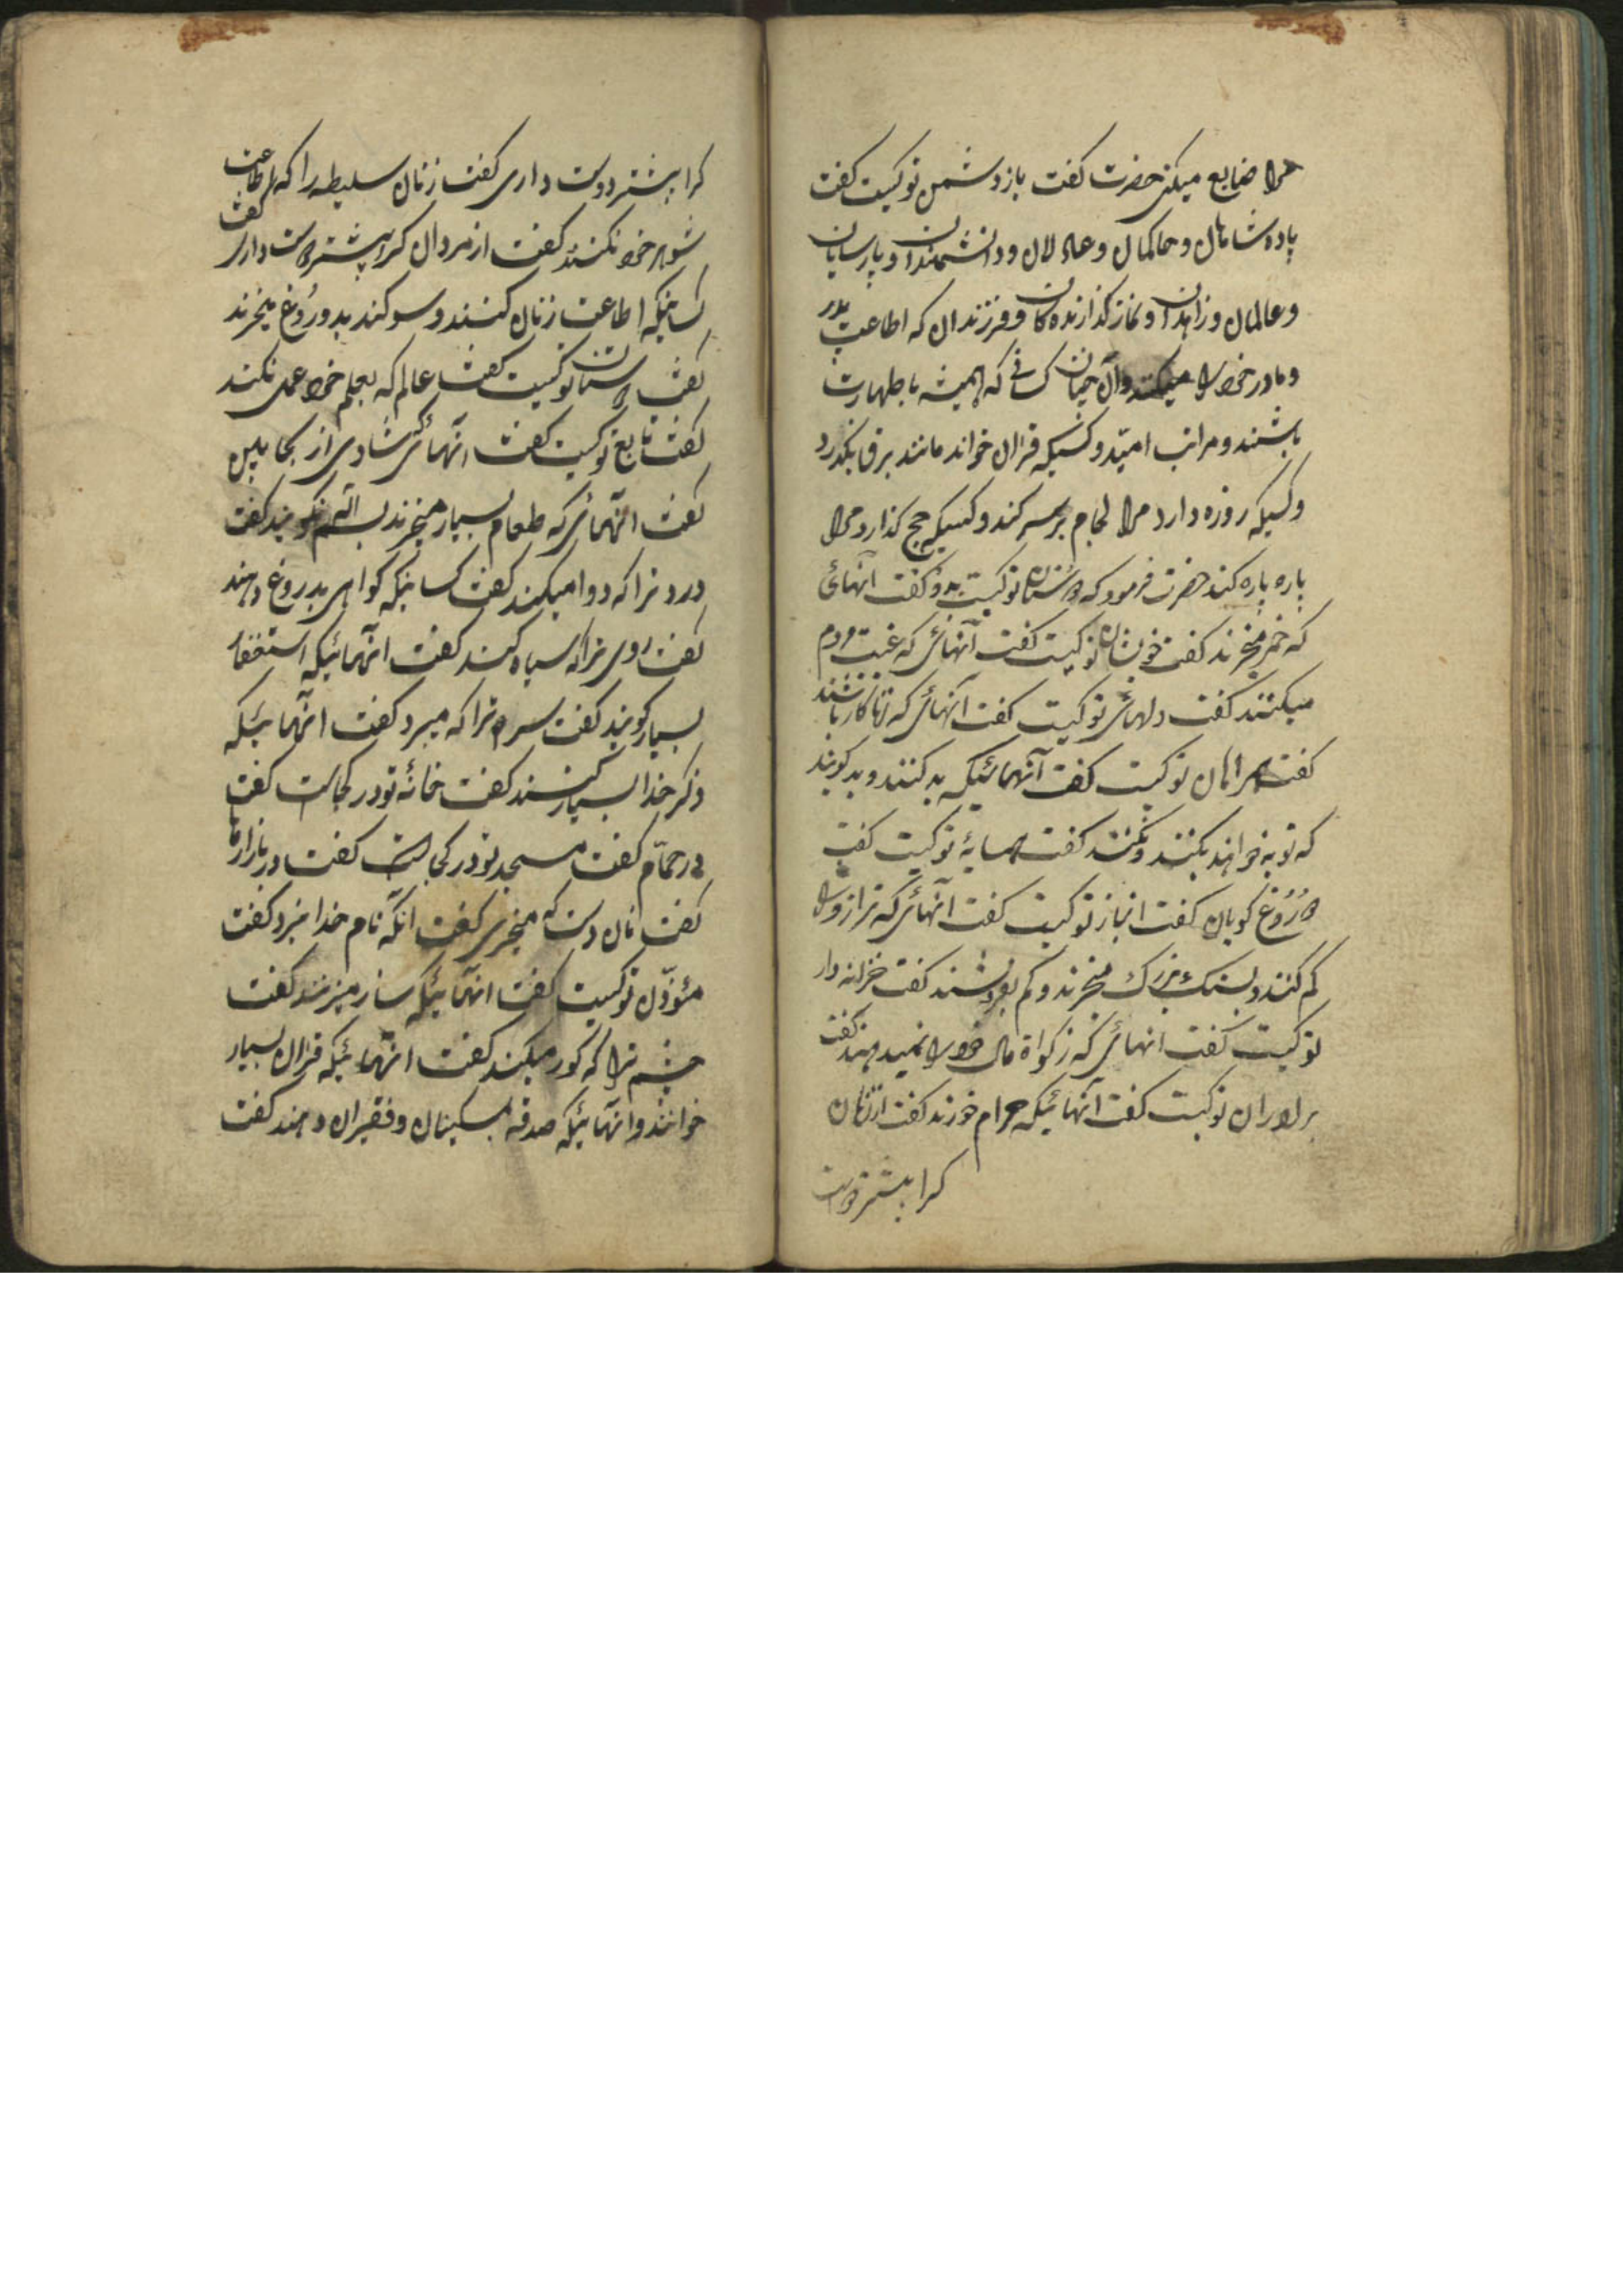 مرا ضایع میکنی حضرت گفت باز دشمن تو کیست گفت
پادشاهان و حاکمان و عادلان و دانشمندان و پارسایان
و عالمان و زاهدان و نماز گذارنده کان و فرزندان که اطاعت پدر
و مادر خود را میکنند و آن که همیشه با طهارت
باشند و کسیکه قران خواند مانند برق بگذرد
و کسیکه روزه دارد مرا لجام بر سر کند و کسیکه حج گذارد مرا
پاره پاره کند حضرت فرمود که دوستان تو کیست گفت آنهائی
که خمر میخرند گفت خویشان تو کیست گفت آنهائی که غیبت مردم
میکنند گفت دلهای تو کیست گفت آنهائی که زناکار باشند
گفت همراهان تو کیست گفت آنهائیکه بد کنند و بد گویند
که توبه خواهند بکنند و نکنند گفت همسایهٔ تو کیست گفت
دُرُوغ گویان گفت انباز تو کیست گفت آنهائی که ترازو را
کم کنند و بسنک بزرک میخرند و کم بفروشند گفت خزانه دار
تو کیست گفت انهائی که زکواة مال خود را نمیدهند گفت
برادران تو کیست گفت آنهائیکه حرام خورند گفت از زنان
کرا بیشتر دوست
کرا بیشتر دوست داری گفت زنان سلیطه را که اطاعت
شوهر خود نکنند گفت از مردان کرا بیشتر دوست داری گفت
کسانیکه اطاعت زنان کنند و سوکند بدورُوغ میخرند
گفت دوستان تو کیست گفت عالم که بعلم خود عمل نکند
گفت تابع تو کیست گفت انهائی شادی از
گفت انهائی که طعام بسیار میخرند بسم الله نگویند گفت
درد ترا که دوا میکند گفت کسانیکه کواهی بدروغ دهند
گفت روی ترا که سیاه کند گفت انهائیکه استغفار
بسیار کویند گفت سر ترا که میبرد گفت انهائیکه
ذکر خدا بسیار کنند گفت خانهٔ تو در کجاست گفت
در حمّام گفت مسجد تو در کجاست گفت در بازارها
گفت نان دست که میخری گفت انکه نام خدا نبرد گفت
مئوذّن تو کیست گفت انهائیکه ساز میزنند گفت
چشم ترا که کور میکند گفت انهائیکه قران بسیار
خوانند و انهائیکه صدقه بمسکینان و فقیران دهند گفت